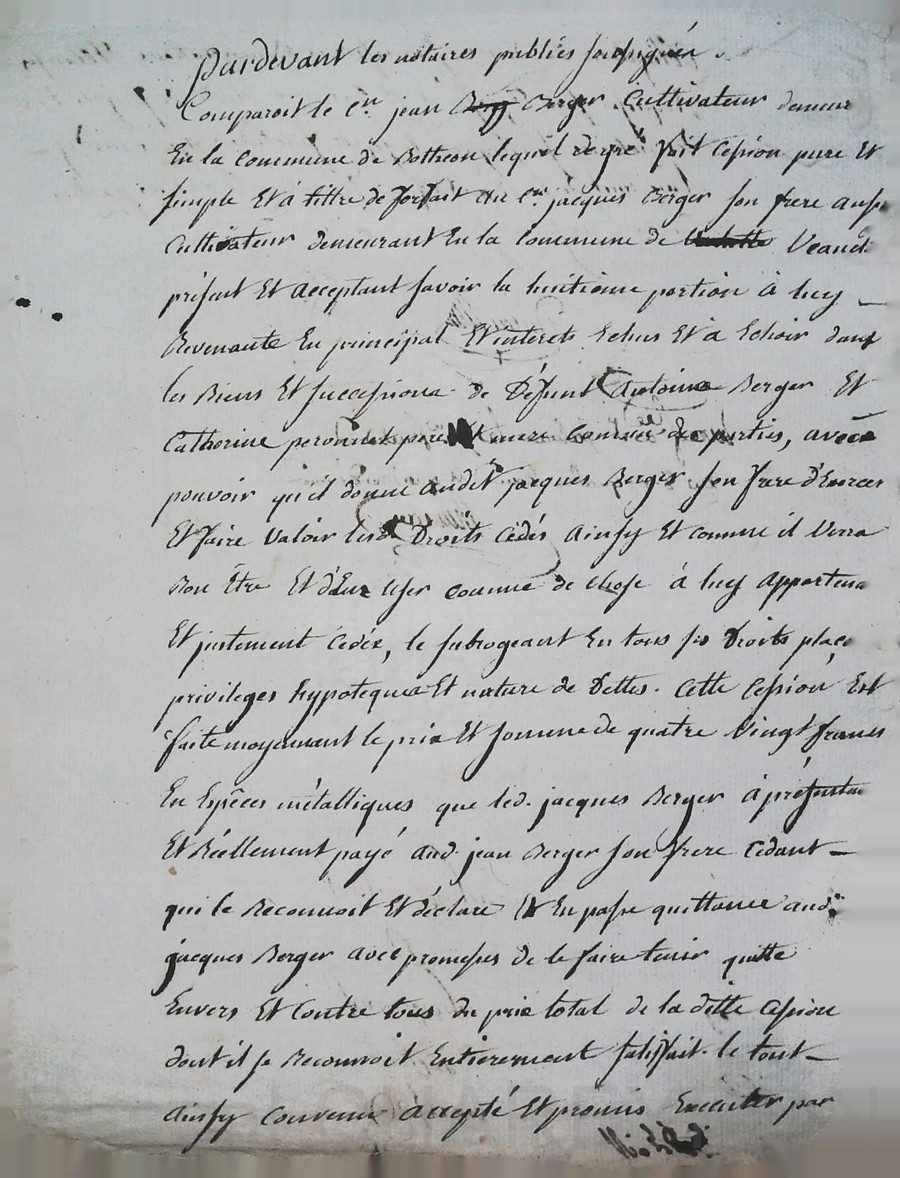 Pardevant les notaires publics soussignés.
Comparoit le c.en jean Berger Cultivateur demeur
En la Commune de Botheon lequel de gré fait Cession pure Et
simple Et à tittre de forfait au c.en jacques Berger son frere aussi
Cultivateur demeurant En la Commune de Veauch
présent Et acceptant savoir la huitieme portion à luy
Revenante En principal Et interets Echus Et à Echoir dans
les Biens Et successions de Défunt Antoine Berger Et
Catherine peronnet pere Et mere communs des parties, avec
pouvoir qu'il donne audit jacques Berger son frere d'Exercer
Et faire valoir lesd. Droits Cédés Ainsy Et comme il Verra
Bon Être Et d'En User comme de chose à luy Appartena
Et justement Cédée, le subrogeant En tous ses Droits place
privileges hypoteques Et nature de Dettes. Cette Cession Est
faite moyennant le prix Et somme de quatre Vingt francs
En Espêces métalliques que led. jacques Berger à présentem
Et Réellement payé aud. jean Berger son frere Cédant
qui le Reconnoit Et déclare Et En passe quittance aud.
jacques Berger avec promesses de le faire tenir quitte
Envers Et Contre tous du prix total de la ditte Cession
dont il se Reconnoit Entierement satisfait. le tout
Ainsy Convenu accepté Et promis Executer par